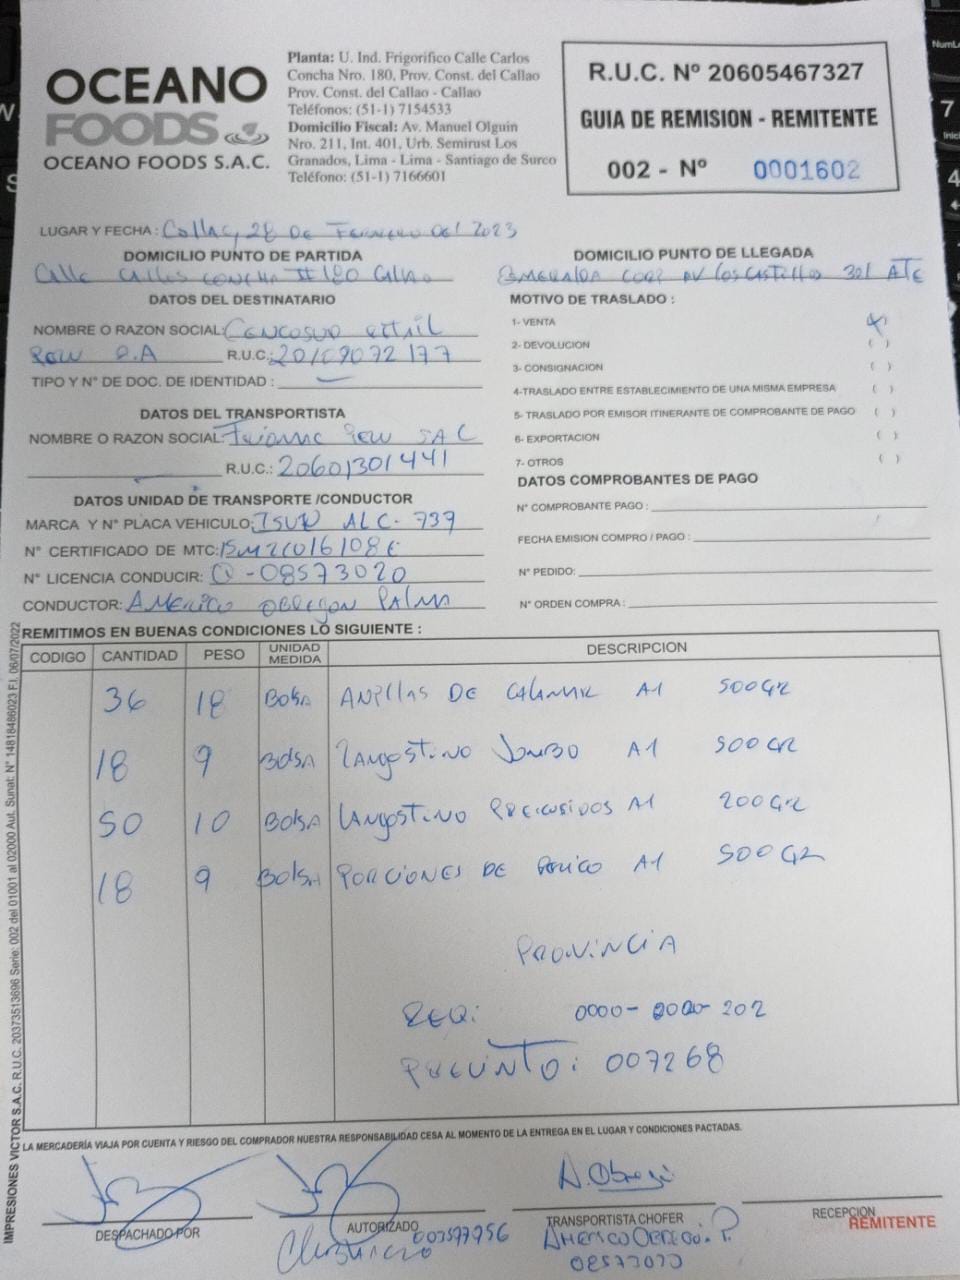 OCEANO
FOODS
OCEANO FOODS S.A.C.
Planta: U. Ind. Frigorifico Calle Carlos
Concha Nro. 180, Prov. Const. del Callao
Prov. Const. del Callao - Callao
Teléfonos: (51-1) 7154533
Domicilio Fiscal: Av. Manuel Olguin
Nro. 211, Int. 401, Urb. Semirust Los
Granados, Lima - Lima - Santiago de Surco
Teléfono: (51-1) 7166601
R.U.C. Nº 20605467327
GUIA DE REMISION - REMITENTE
002 - Nº 0001602
LUGAR Y FECHA: Callao, 28 De Febrero Del 2023
DOMICILIO PUNTO DE PARTIDA
Calle Carlos Concha # 180 Callao
DOMICILIO PUNTO DE LLEGADA
Esmeralda Corp Av Los Castillo 301 ATE
DATOS DEL DESTINATARIO
NOMBRE O RAZON SOCIAL: Cencosud Retail
Peru S.A R.U.C.: 20109072177
TIPO Y Nº DE DOC. DE IDENTIDAD :
MOTIVO DE TRASLADO :
1- VENTA (X)
2- DEVOLUCION ( )
3- CONSIGNACION ( )
4-TRASLADO ENTRE ESTABLECIMIENTO DE UNA MISMA EMPRESA ( )
5- TRASLADO POR EMISOR ITINERANTE DE COMPROBANTE DE PAGO ( )
6- EXPORTACION ( )
7- OTROS ( )
DATOS DEL TRANSPORTISTA
NOMBRE O RAZON SOCIAL: Peru SAC
R.U.C.: 20601301441
DATOS UNIDAD DE TRANSPORTE /CONDUCTOR
MARCA Y Nº PLACA VEHICULO: ISUZU ALC-739
Nº CERTIFICADO DE MTC: 15M2C016108E
Nº LICENCIA CONDUCIR: Q-08573020
CONDUCTOR: AMERICO OBREGON PALMA
DATOS COMPROBANTES DE PAGO
Nº COMPROBANTE PAGO :
FECHA EMISION COMPRO / PAGO :
Nº PEDIDO:
Nº ORDEN COMPRA :
REMITIMOS EN BUENAS CONDICIONES LO SIGUIENTE :
CODIGO CANTIDAD PESO UNIDAD MEDIDA DESCRIPCION
36 18 Bolsa ANILLAS DE CALAMAR A1 500GR
18 9 Bolsa LANGOSTINO JUMBO A1 500GR
50 10 Bolsa LANGOSTINO PRECOSIDOS A1 200GR
18 9 Bolsa PORCIONES DE PERICO A1 500GR
PROVINCIA
REQ: 0000-2020-202
PRECINTO: 007268
IMPRESIONES VICTOR S.A.C. R.U.C. 20373513696 Serie: 002 del 01001 al 02000 Aut. Sunat: Nº 14818486023 F.I. 06/07/2022
LA MERCADERÍA VIAJA POR CUENTA Y RIESGO DEL COMPRADOR NUESTRA RESPONSABILIDAD CESA AL MOMENTO DE LA ENTREGA EN EL LUGAR Y CONDICIONES PACTADAS.
A. Obregó
DESPACHADO POR
AUTORIZADO
003577956
TRANSPORTISTA CHOFER
AMERICO OBREGO. P.
08573020
RECEPCION
REMITENTE